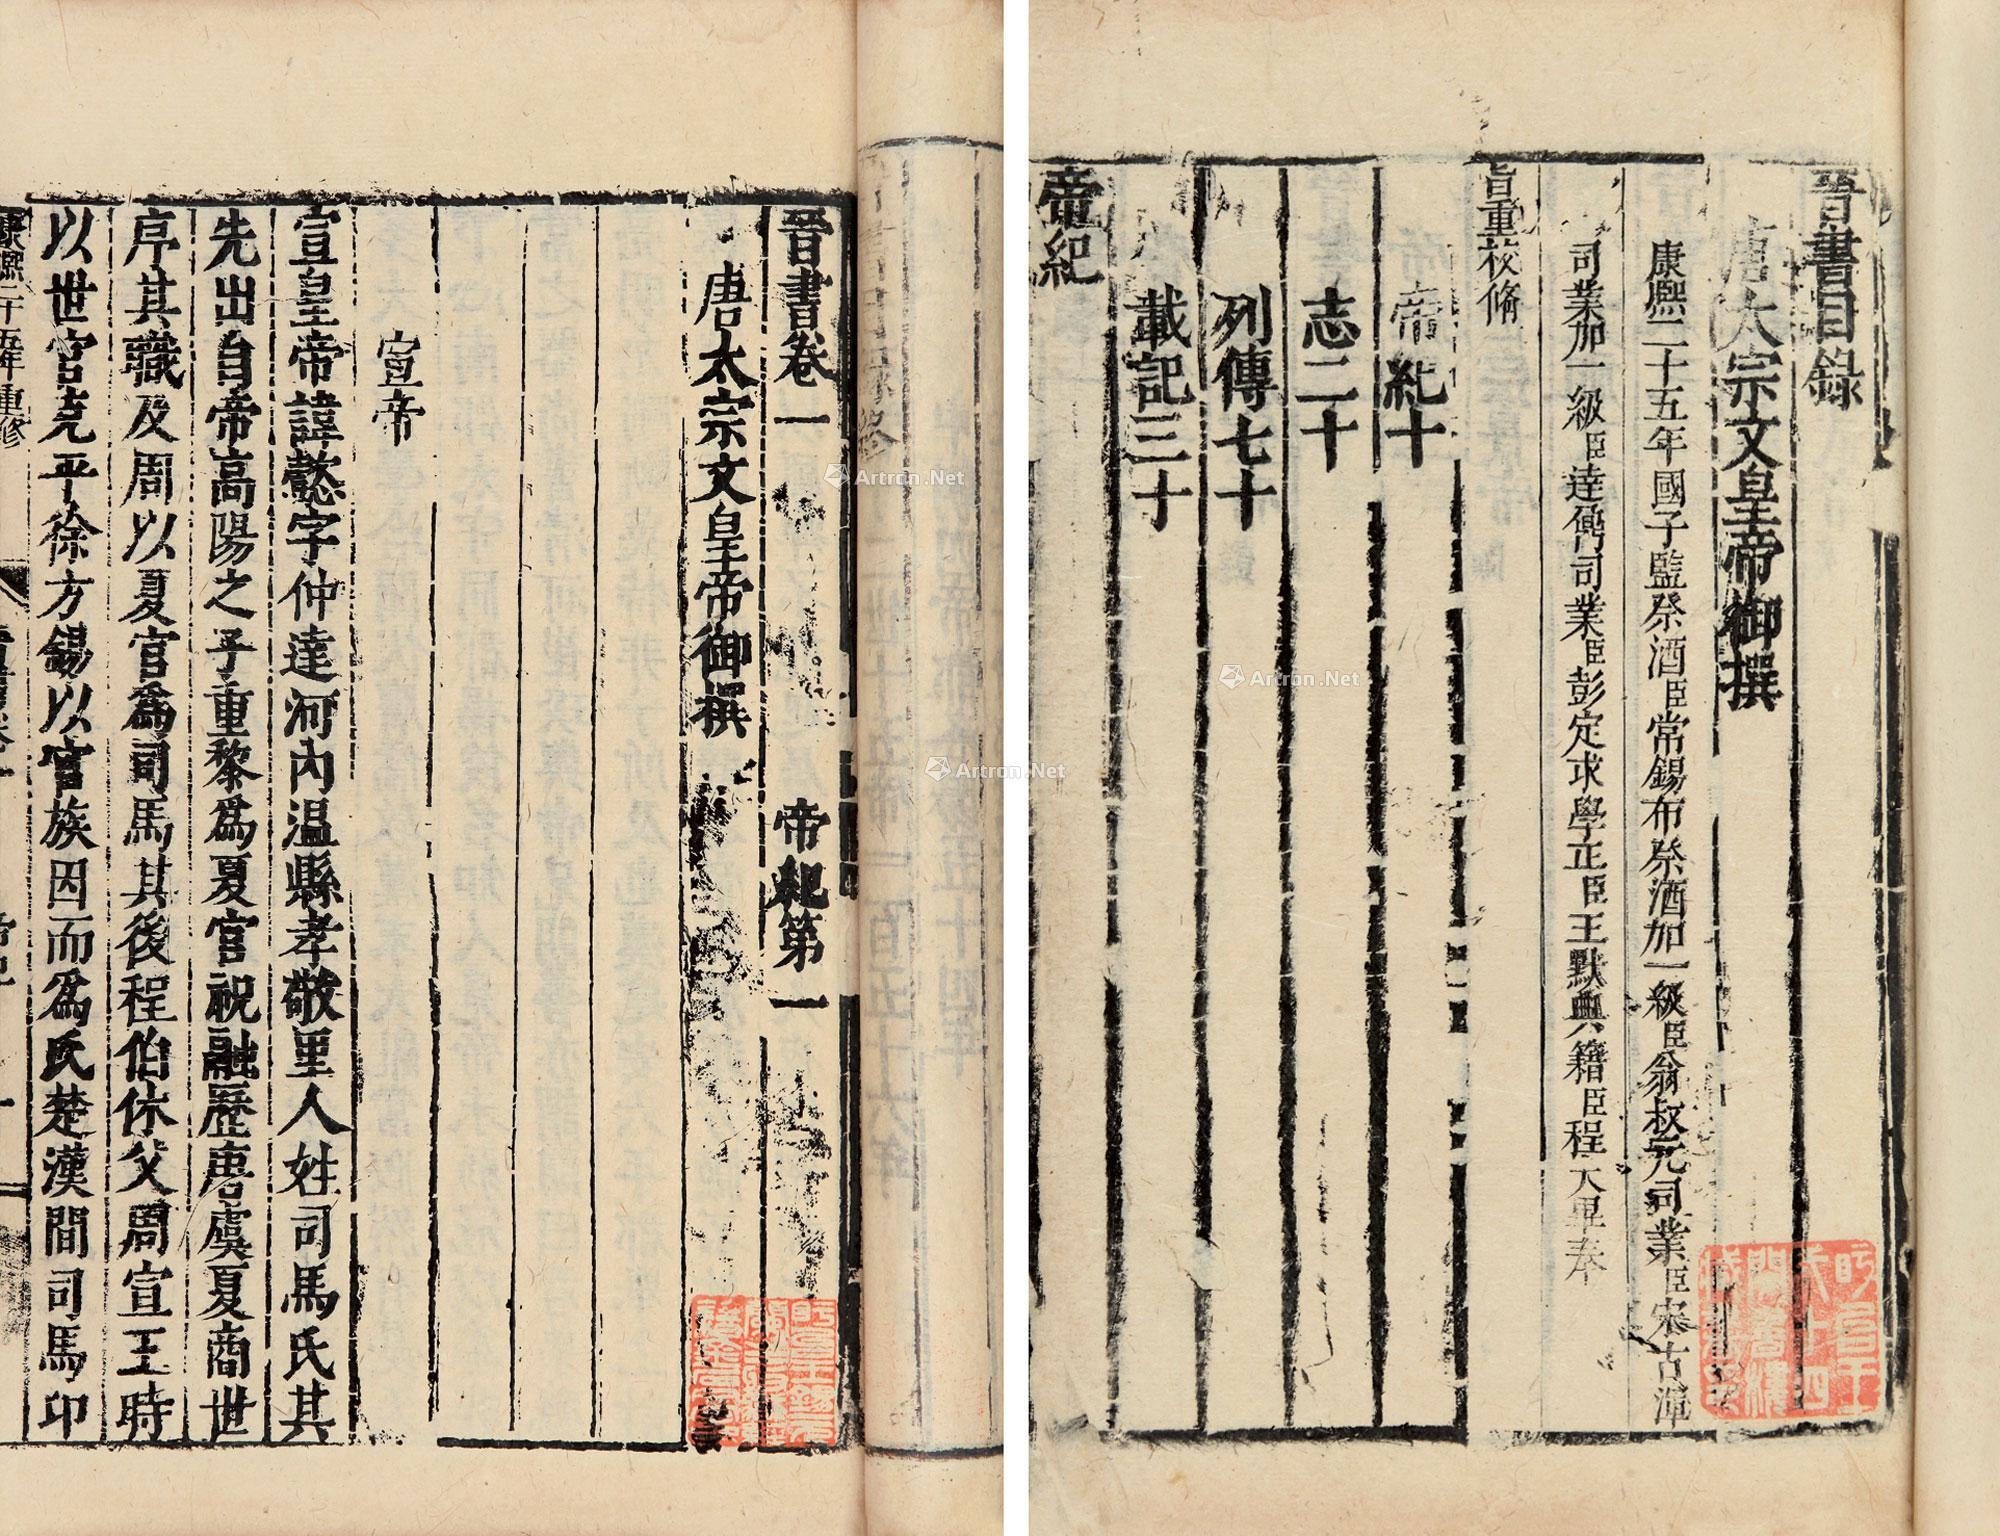 晉書目錄
唐太宗文皇帝御撰
康熈二十五年國子監祭酒臣常錫布祭酒加一級臣翁叔元司業臣宋古渾
司業加一級臣達鼐司業臣彭定求學正臣王默典籍臣程大畢奉
旨重挍脩
帝紀十
志二十
列傳七十
載記三十
帝紀
晉書卷一 帝紀第一
唐太宗文皇帝御撰
宣帝
宣皇帝諱懿字仲達河內温縣孝敬里人姓司馬氏其
先出自帝高陽之子重黎爲夏官祝融歷唐虞夏商世
序其職及周以夏官爲司馬其後程伯休父周宣王時
以世官克平徐方錫以官族因而爲氏楚漢間司馬卬
康熈二十五年重修
Artron.Net
Artron.Net
Artron.Net